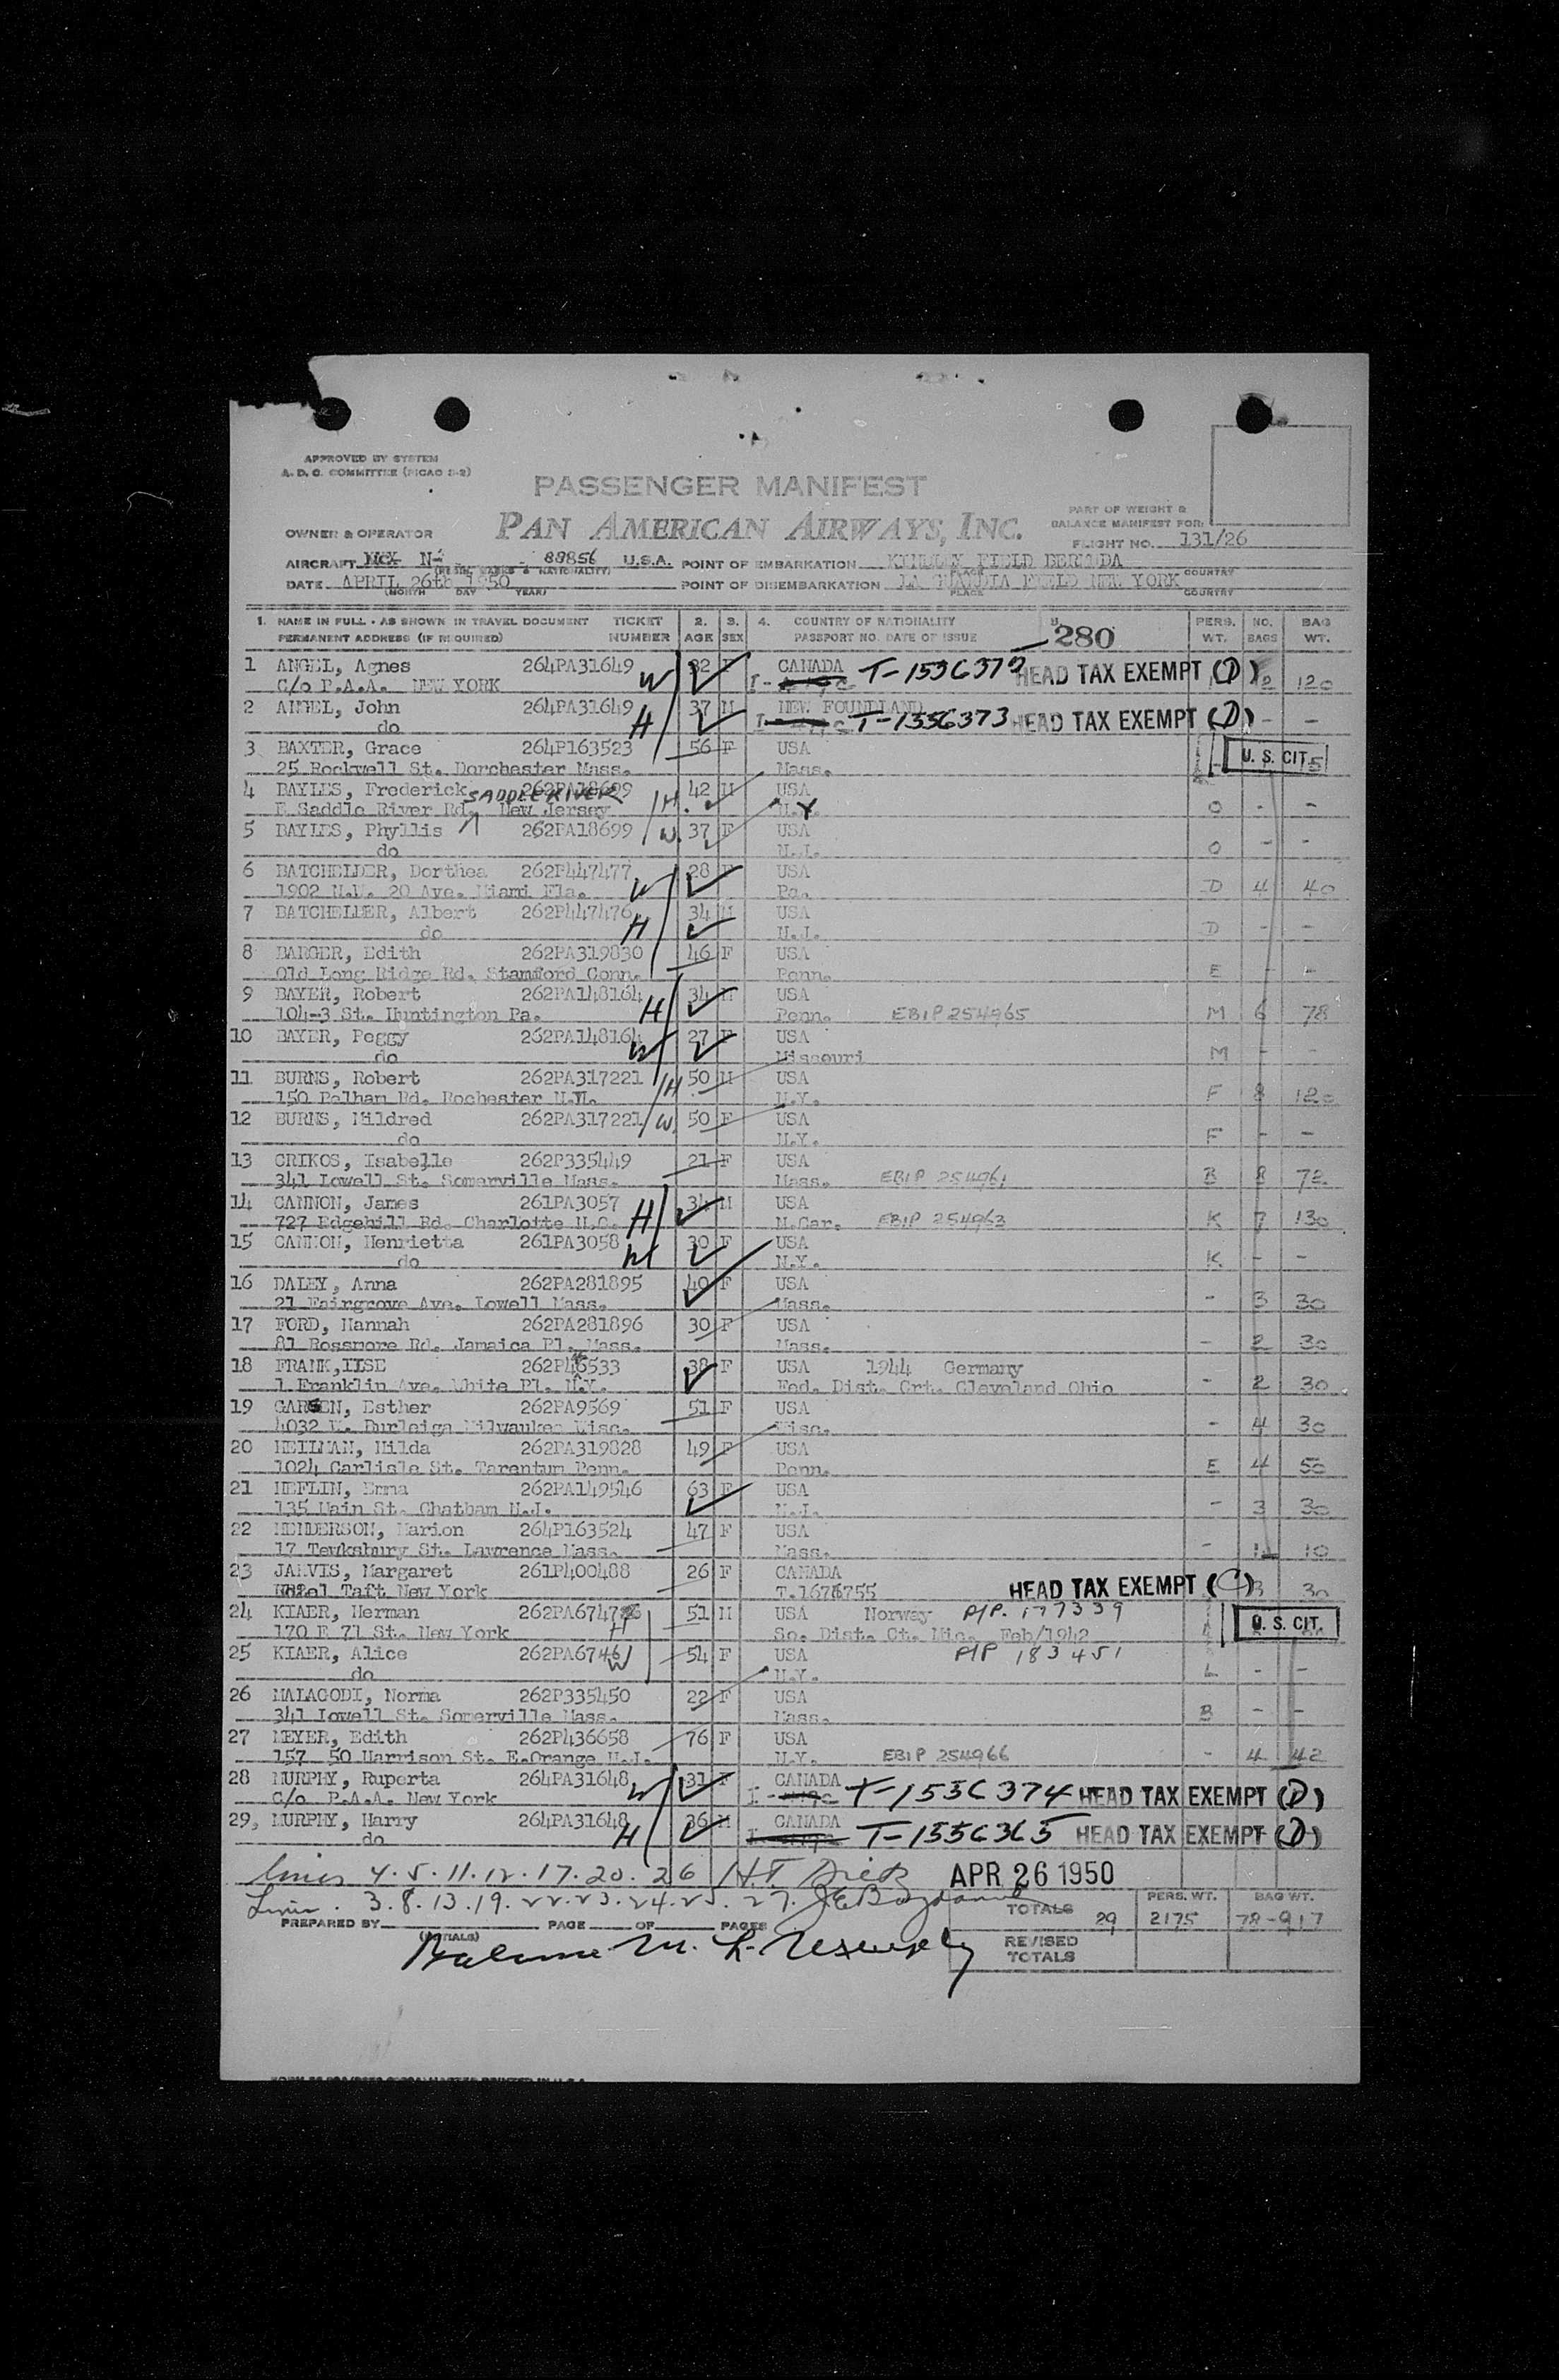 APPROVED BY SYSTEM
A. D. C. COMMITTEE (PICAO S-2)
PASSENGER MANIFEST
PART OF WEIGHT &
BALANCE MANIFEST FOR:
OWNER & OPERATOR PAN AMERICAN AIRWAYS, INC.
FLIGHT NO. 131/26
AIRCRAFT N- 88856 U.S.A. POINT OF EMBARKATION KINDLEY FIELD BERMUDA
PLACE COUNTRY
DATE APRIL 26th 1950 POINT OF DISEMBARKATION LA GUARDIA FIELD NEW YORK
(MONTH DAY YEAR) PLACE COUNTRY
1. NAME IN FULL - AS SHOWN IN TRAVEL DOCUMENT TICKET 2. 3. 4. COUNTRY OF NATIONALITY 5. PERS. NO. BAG
PERMANENT ADDRESS (IF REQUIRED) NUMBER AGE SEX PASSPORT NO. DATE OF ISSUE 280 WT. BAGS WT.
1 ANGEL, Agnes 264PA31649 W 32 F CANADA T-1536372 HEAD TAX EXEMPT (D) 2 120
C/o P.A.A. NEW YORK
2 ANGEL, John 264PA31649 H 37 M NEW FOUNDLAND T-1556373 HEAD TAX EXEMPT (D) - -
do
3 BAXTER, Grace 264P163523 56 F USA U. S. CIT.
25 Rockwell St. Dorchester Mass. Mass.
4 BAYLES, Frederick 262PA18699 H. 42 M USA
E Saddle River Rd. SADDLE RIVER New Jersey N.Y. O - -
5 BAYLES, Phyllis 262PA18699 W. 37 F USA
do N.J. O - -
6 BATCHELDER, Dorthea 262P447477 W 28 F USA
1902 N.W. 20 Ave. Miami Fla. Pa. D 4 40
7 BATCHELLER, Albert 262P447476 H 34 M USA
do N.J. D - -
8 BARGER, Edith 262PA319830 46 F USA
Old Long Ridge Rd. Stamford Conn. Penn. E - -
9 BAYER, Robert 262PA148164 H 34 M USA
104-3 St. Huntington Pa. Penn. EBIP 254965 M 6 78
10 BAYER, Peggy 262PA148164 W 27 F USA
do Missouri M - -
11 BURNS, Robert 262PA317221 H 50 M USA
150 Pelham Rd. Rochester N.Y. N.Y. F 8 120
12 BURNS, Mildred 262PA317221 W. 50 F USA
do N.Y. F - -
13 CRIKOS, Isabelle 262P335449 21 F USA
341 Lowell St. Somerville Mass. Mass. EBIP 254961 B 8 72
14 CANNON, James 261PA3057 H 34 M USA
727 Edgehill Rd. Charlotte N.C. N.Car. EBIP 254963 K 7 130
15 CANNON, Henrietta 261PA3058 W 30 F USA
do N.Y. K - -
16 DALEY, Anna 262PA281895 40 F USA
21 Fairgrove Ave. Lowell Mass. Mass. - 3 30
17 FORD, Hannah 262PA281896 30 F USA
81 Rossmore Rd. Jamaica Pl. Mass. Mass. - 2 30
18 FRANK, ILSE 262P46533 38 F USA 1944 Germany
1 Franklin Ave. White Pl. N.Y. Fed. Dist. Crt. Cleveland Ohio - 2 30
19 GARSEN, Esther 262PA9569 51 F USA
4032 W. Burleigh Milwaukee Wisc. Wisc. - 4 30
20 HEILMAN, Hilda 262PA319828 49 F USA
1024 Carlisle St. Tarentum Penn. Penn. E 4 50
21 HEFLIN, Emma 262PA149546 63 F USA
135 Main St. Chatham N.J. N.J. - 3 30
22 HENDERSON, Marion 264P163524 47 F USA
17 Tewksbury St. Lawrence Mass. Mass. - 1 10
23 JARVIS, Margaret 261P400488 26 F CANADA
Hotel Taft New York T.1676755 HEAD TAX EXEMPT (C) 3 30
24 KIAER, Herman 262PA6747 H 51 M USA Norway P/P. 177339 U. S. CIT.
170 E 71 St. New York So. Dist. Ct. Mic. Feb/1942
25 KIAER, Alice 262PA6746 W 54 F USA P/P 183451
do N.Y. L - -
26 MALAGODI, Norma 262P335450 22 F USA
341 Lowell St. Somerville Mass. Mass. B - -
27 MEYER, Edith 262P436658 76 F USA
157 50 Harrison St. E.Orange N.J. N.Y. EBIP 254966 - 4 42
28 MURPHY, Ruperta 264PA31648 W 31 F CANADA T-1536374 HEAD TAX EXEMPT (D)
C/o P.A.A. New York
29, MURPHY, Harry 264PA31648 H 36 M CANADA T-1556365 HEAD TAX EXEMPT (D)
do
Lines 4. 5. 11. 12. 17. 20. 26 H.T. APR 26 1950
Lines. 3. 8. 13. 19. 22. 23. 24. 25. 27.
PREPARED BY PAGE OF PAGES TOTALS 29 PERS. WT. 2175 BAG WT. 78-917
(INITIALS)
Balance M. L.
REVISED
TOTALS